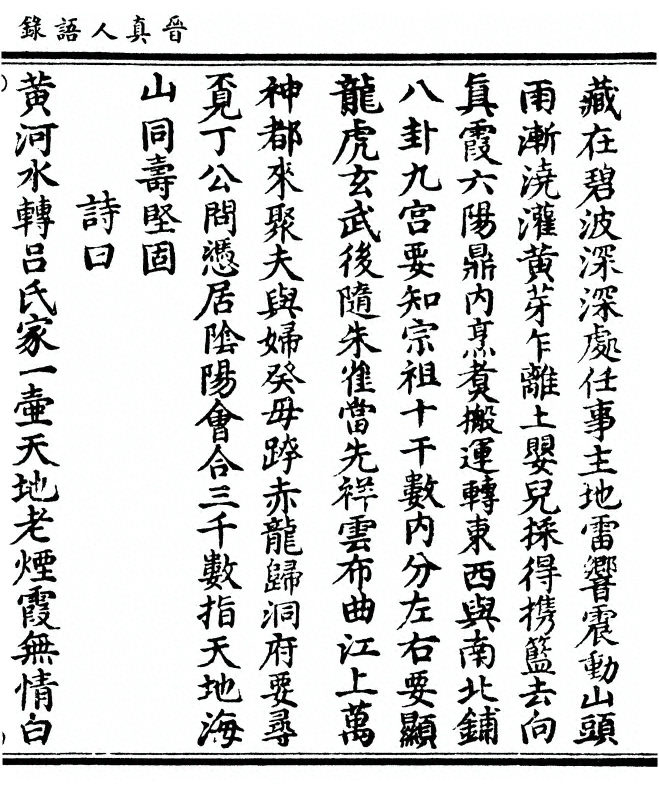 晉真人語錄
藏在碧波深深處任事主地雷響震動山頭
雨漸澆灌黃芽乍離土嬰兒採得携籃去向
眞霞六陽鼎內烹煑搬運轉東西與南北鋪
八卦九宮要知宗祖十干數內分左右要顯
龍虎玄武後隨朱雀當先祥雲布曲江上萬
神都來聚夫與婦癸毋跨赤龍歸洞府要尋
覓丁公問憑居陰陽會合三千數指天地海
山同壽堅固
詩曰
黃河水轉呂氏家一壷天地老煙霞無情白